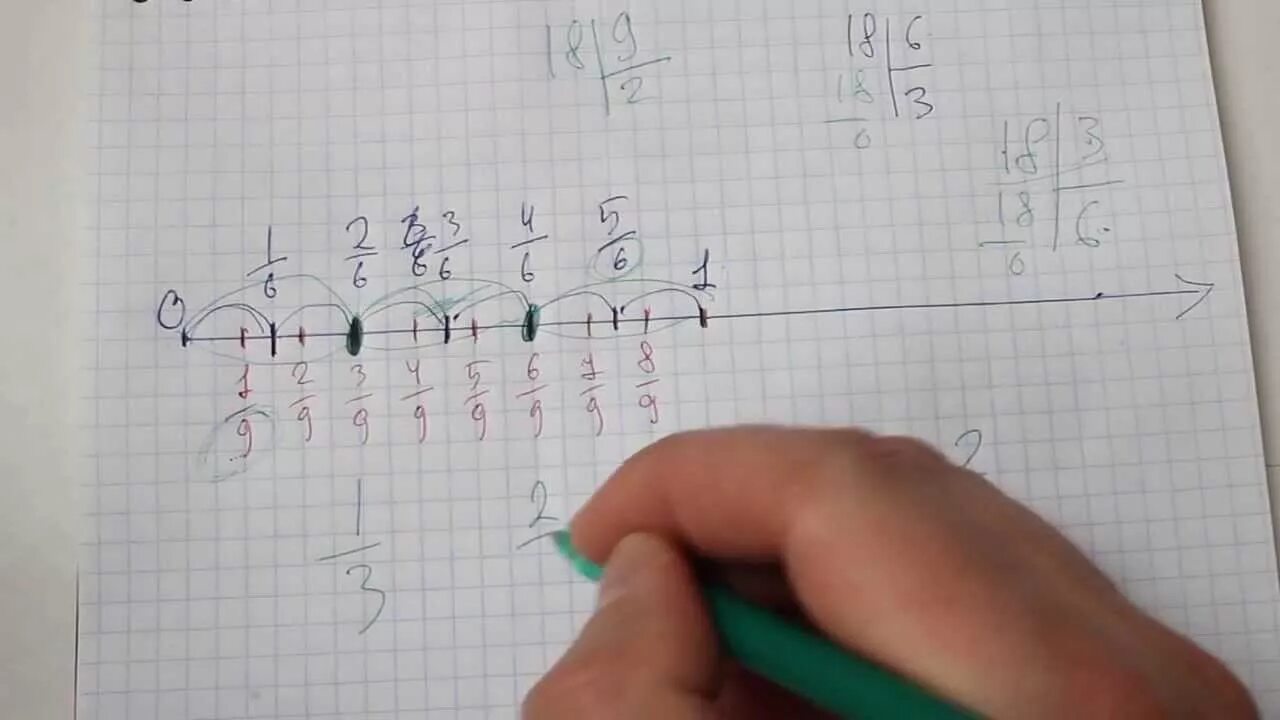 18 9
2
18 6
18 3
0
18 3
18 6
0
1/6 2/6 3/6 4/6 5/6
0 1
1/9 2/9 3/9 4/9 5/9 6/9 7/9 8/9
1/3 2 2